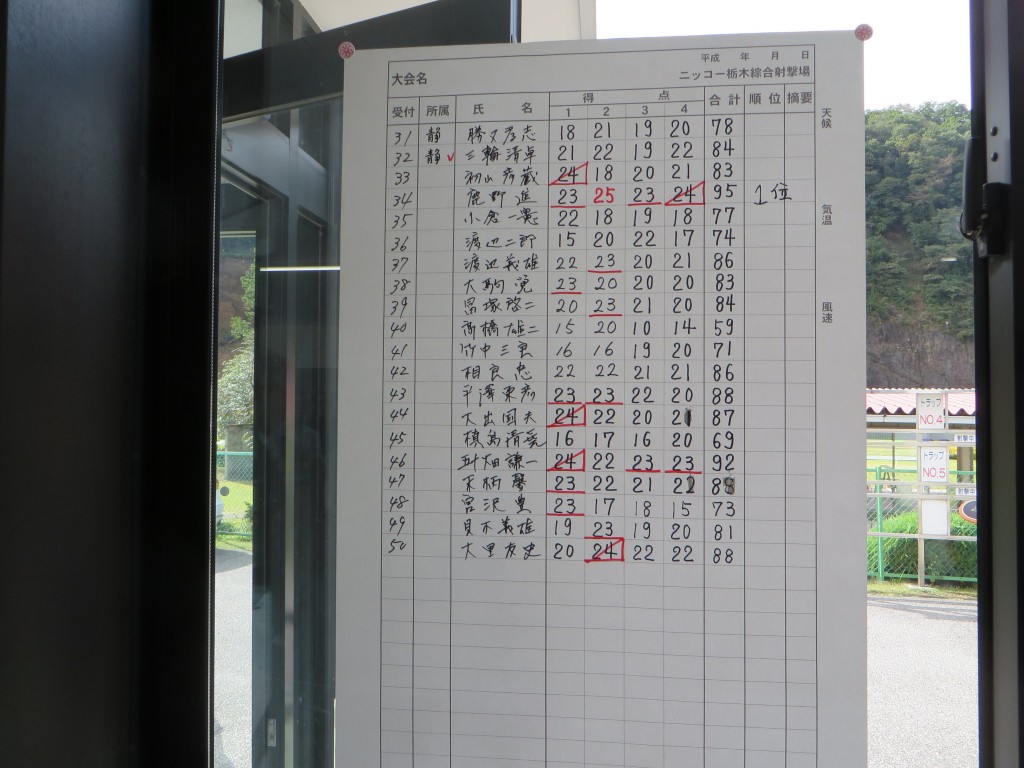 平成 年 月 日
大会名 ニッコー栃木綜合射撃場
受付 所属 氏 名 得 点 合計 順位 摘要
1 2 3 4
天候
気温
風速
31 静 勝又彦志 18 21 19 20 78
32 静 三輪清卓 21 22 19 22 84
33 初山彦蔵 24 18 20 21 83
34 鹿野進 23 25 23 24 95 1位
35 小倉一 22 18 19 18 77
36 渡辺二郎 15 20 22 17 74
37 渡辺義雄 22 23 20 21 86
38 大駒 23 20 20 20 83
39 黒塚啓二 20 23 21 20 84
40 高橋雄二 15 20 10 14 59
41 竹中三 16 16 19 20 71
42 相良忠 22 22 21 21 86
43 平澤東彦 23 23 22 20 88
44 大出国夫 24 22 20 21 87
45 島清 16 17 16 20 69
46 畑謙一 24 22 23 23 92
47 柄馨 23 22 21 22 88
48 宮沢豊 23 17 18 15 73
49 貝木義雄 19 23 19 20 81
50 大里友史 20 24 22 22 88
トラップ
NO.4
射撃中
トラップ
NO.5
射撃中